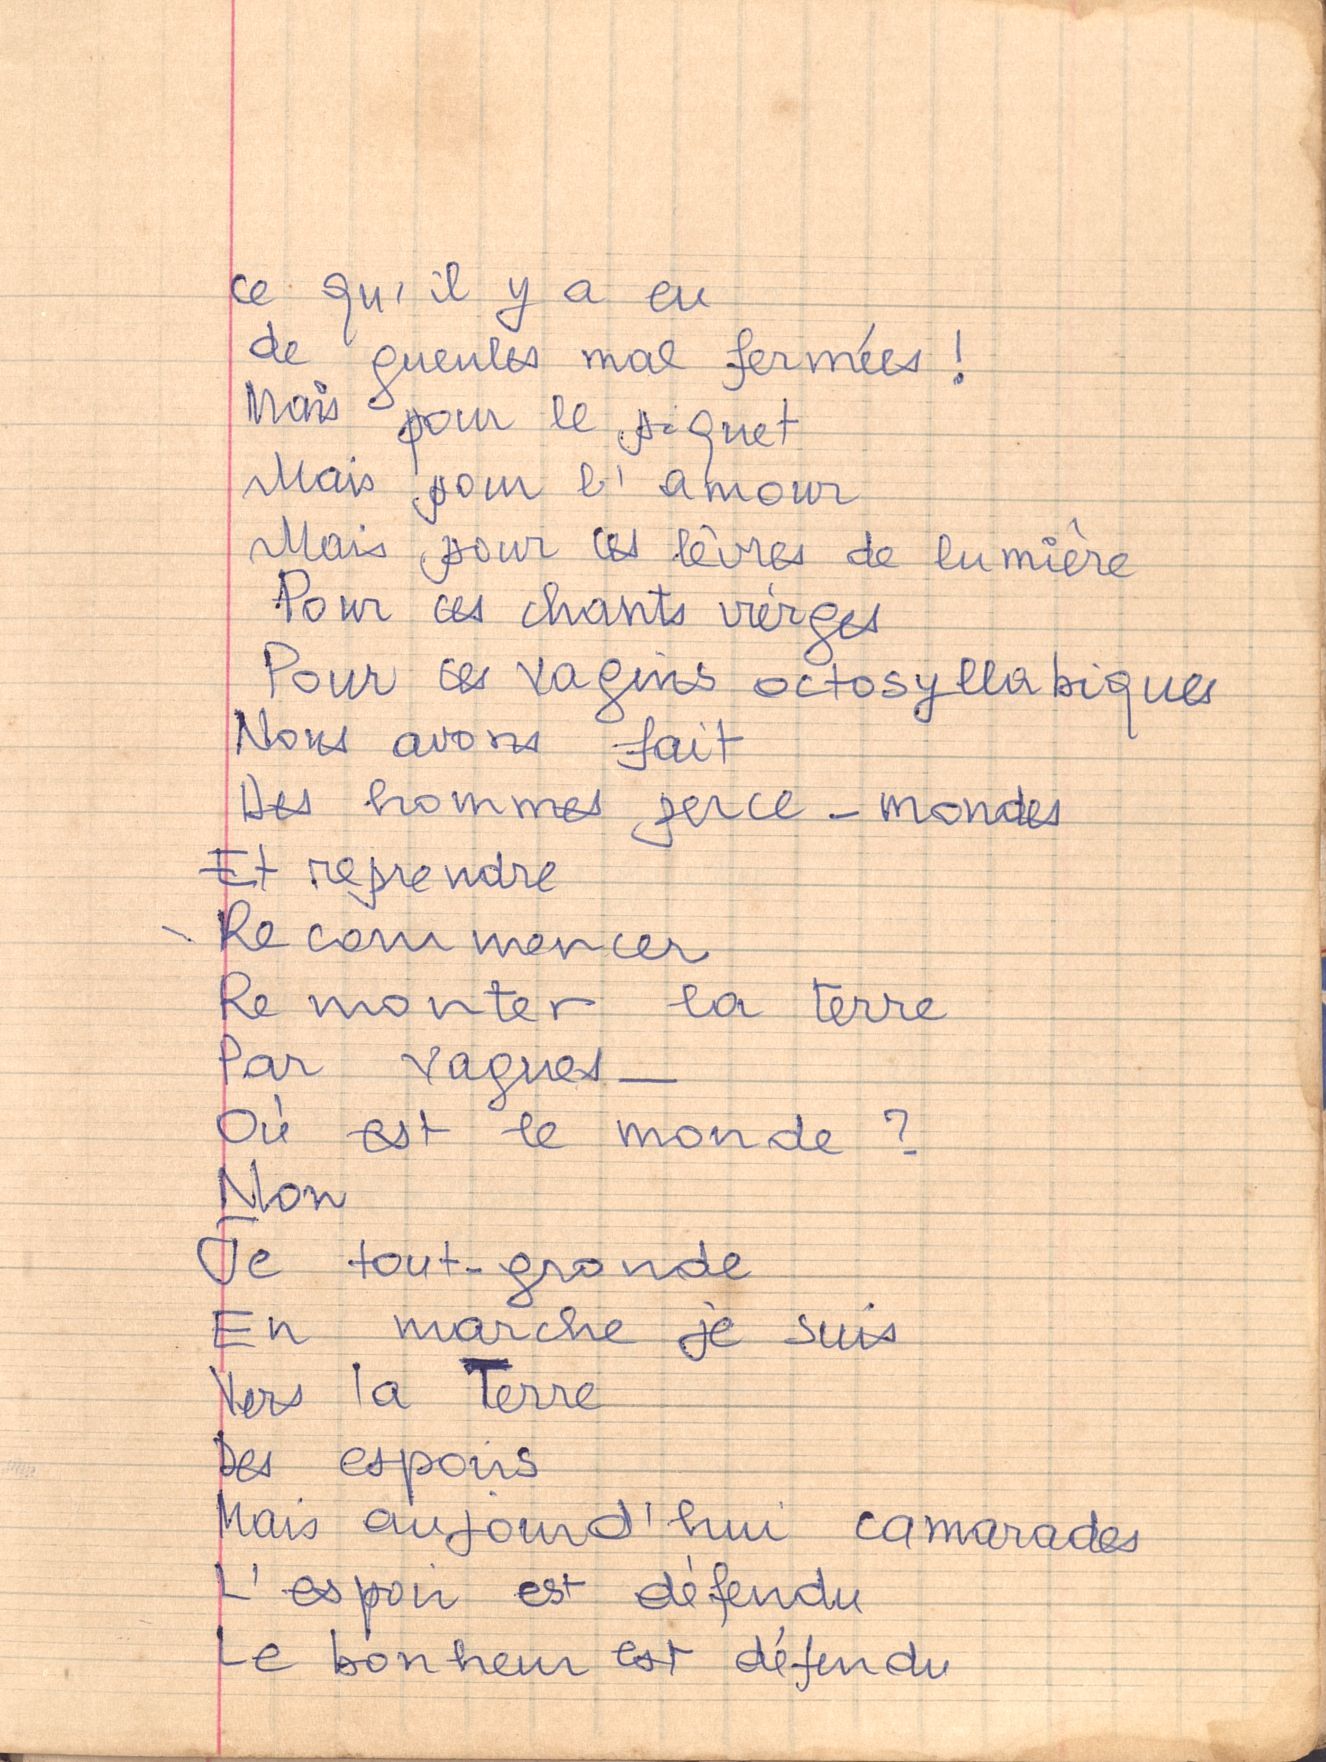 ce qu'il y a eu
de gueules mal fermées !
Mais pour le piquet
Mais pour l'amour
Mais pour ces lèvres de lumière
Pour ces chants vierges
Pour ces vagins octosyllabiques
Nous avons fait
Des hommes perce-mondes
Et reprendre
Recommencer
Remonter la terre
Par vagues_
Où est le monde ?
Non
Je tout-gronde
En marche je suis
Vers la Terre
Des espoirs
Mais aujourd'hui camarades
L'espoir est défendu
Le bonheur est défendu